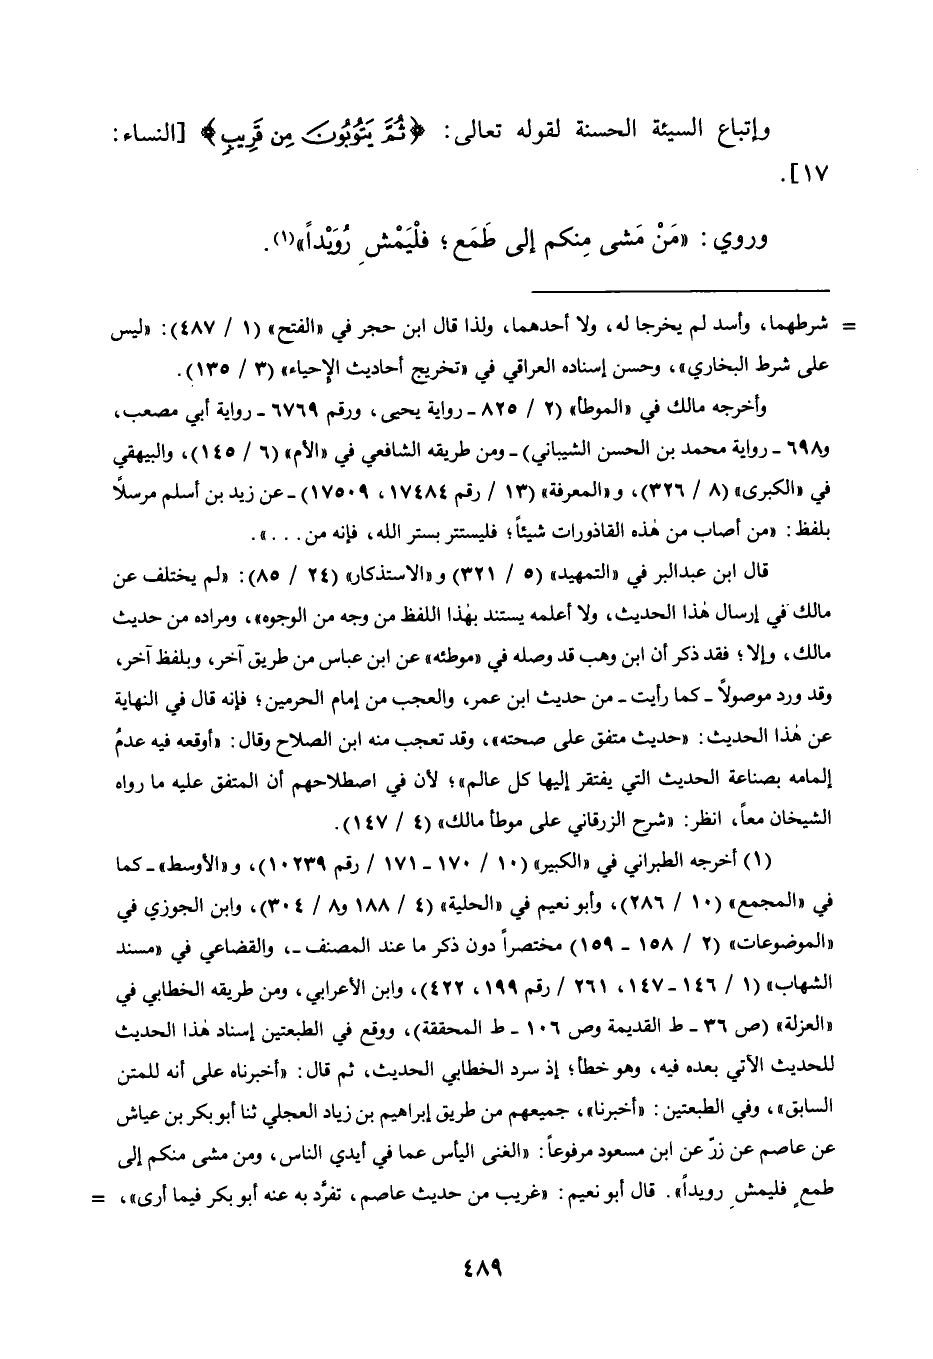 وإتباع السيئة الحسنة لقوله تعالى: ﴿ثُمَّ يَتُوبُونَ مِن قَرِيبٍ﴾ [النساء:
١٧].
وروي: «مَنْ مَشى مِنكم إلى طَمَع؛ فلْيَمْشِ رُوَيْداً»(١).
= شرطهما، وأسد لم يخرجا له، ولا أحدهما، ولذا قال ابن حجر في «الفتح» (١ / ٤٨٧): «ليس
على شرط البخاري»، وحسن إسناده العراقي في «تخريج أحاديث الإحياء» (٣ / ١٣٥).
وأخرجه مالك في «الموطأ» (٢ / ٨٢٥ ـ رواية يحيى، ورقم ٦٧٦٩ ـ رواية أبي مصعب،
و٦٩٨ ـ رواية محمد بن الحسن الشيباني) ـ ومن طريقه الشافعي في «الأم» (٦ / ١٤٥)، والبيهقي
في «الكبرى» (٨ / ٣٢٦)، و«المعرفة» (١٣ / رقم ١٧٤٨٤، ١٧٥٠٩) ـ عن زيد بن أسلم مرسلاً
بلفظ: «من أصاب من هٰذه القاذورات شيئاً؛ فليستتر بستر الله، فإنه من...».
قال ابن عبدالبر في «التمهيد» (٥ / ٣٢١) و«الاستذكار» (٢٤ / ٨٥): «لم يختلف عن
مالك في إرسال هٰذا الحديث، ولا أعلمه يستند بهٰذا اللفظ من وجه من الوجوه»، ومراده من حديث
مالك، وإلا؛ فقد ذكر أن ابن وهب قد وصله في «موطئه» عن ابن عباس من طريق آخر، وبلفظ آخر،
وقد ورد موصولاً ـ كما رأيت ـ من حديث ابن عمر، والعجب من إمام الحرمين؛ فإنه قال في النهاية
عن هٰذا الحديث: «حديث متفق على صحته»، وقد تعجب منه ابن الصلاح وقال: «أوقعه فيه عدمُ
إلمامه بصناعة الحديث التي يفتقر إليها كل عالم»؛ لأن في اصطلاحهم أن المتفق عليه ما رواه
الشيخان معاً، انظر: «شرح الزرقاني على موطأ مالك» (٤ / ١٤٧).
(١) أخرجه الطبراني في «الكبير» (١٠ / ١٧٠ ـ ١٧١ / رقم ١٠٢٣٩)، و«الأوسط» ـ كما
في «المجمع» (١٠ / ٢٨٦)، وأبو نعيم في «الحلية» (٤ / ١٨٨ و٨ / ٣٠٤)، وابن الجوزي في
«الموضوعات» (٢ / ١٥٨ ـ ١٥٩) مختصراً دون ذكر ما عند المصنف ـ، والقضاعي في «مسند
الشهاب» (١ / ١٤٦ ـ ١٤٧، ٢٦١ / رقم ١٩٩، ٤٢٢)، وابن الأعرابي، ومن طريقه الخطابي في
«العزلة» (ص ٣٦ ـ ط القديمة وص ١٠٦ ـ ط المحققة)، ووقع في الطبعتين إسناد هٰذا الحديث
للحديث الآتي بعده فيه، وهو خطأ؛ إذ سرد الخطابي الحديث، ثم قال: «أخبرناه على أنه للمتن
السابق»، وفي الطبعتين: «أخبرنا»، جميعهم من طريق إبراهيم بن زياد العجلي ثنا أبو بكر بن عياش
عن عاصم عن زرّ عن ابن مسعود مرفوعاً: «الغنى اليأس عما في أيدي الناس، ومن مشى منكم إلى
طمعٍ فليمشِ رويداً». قال أبو نعيم: «غريب من حديث عاصم، تفرَّد به عنه أبو بكر فيما أرى»، =
٤٨٩